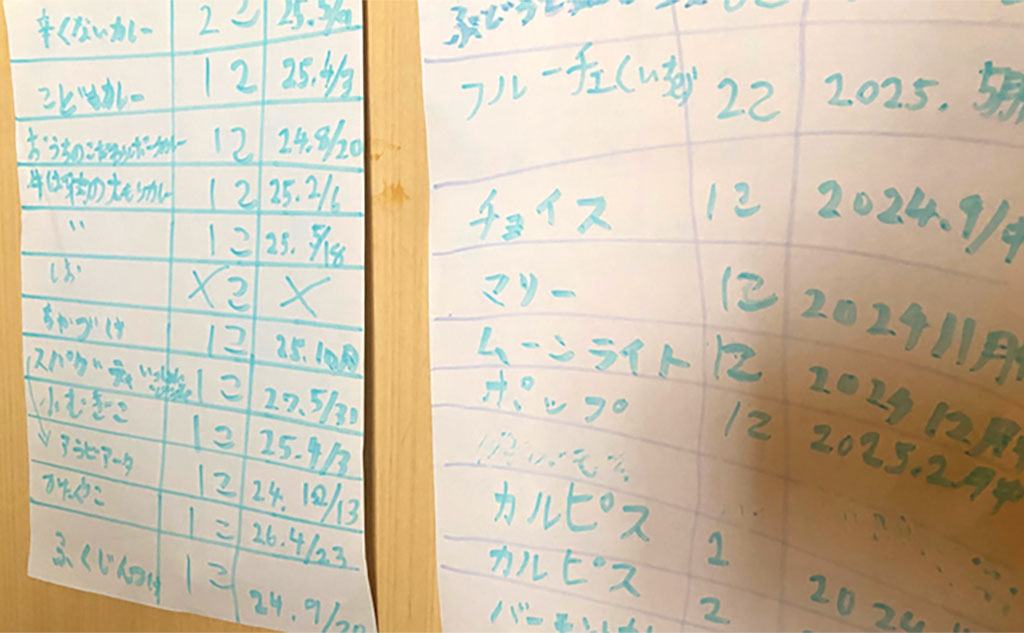 辛くないカレー 2こ 25.5/9
こどもカレー 1こ 25.4/3
おうちのこだわりポークカレー 1こ 24.8/20
1こ 25.2/6
〃 1こ 25.5/18
しお ×こ ×
1こ 25.10月
スパゲティ 1こ 27.5/30
小むぎこ 1こ 25.4/3
アラビアータ 1こ 24.12/13
かたくりこ 1こ 26.4/23
ふくじんづけ 1こ 24.9/20
フルーチェ 2こ 2025.5月
チョイス 1こ 2024.9/
マリー 1こ 2024 11月
ムーンライト 1こ 2024 12月
ポップ 1こ 2025.2月
カルピス 2
カルピス 2 2024